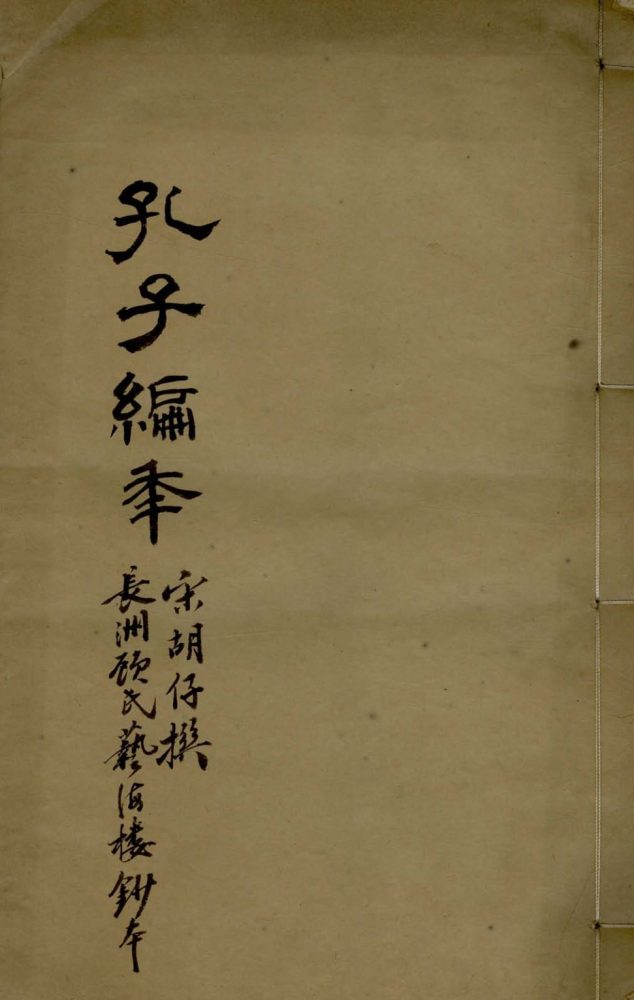 孔子編秊
宋胡仔撰
長洲顧氏藝海樓鈔本